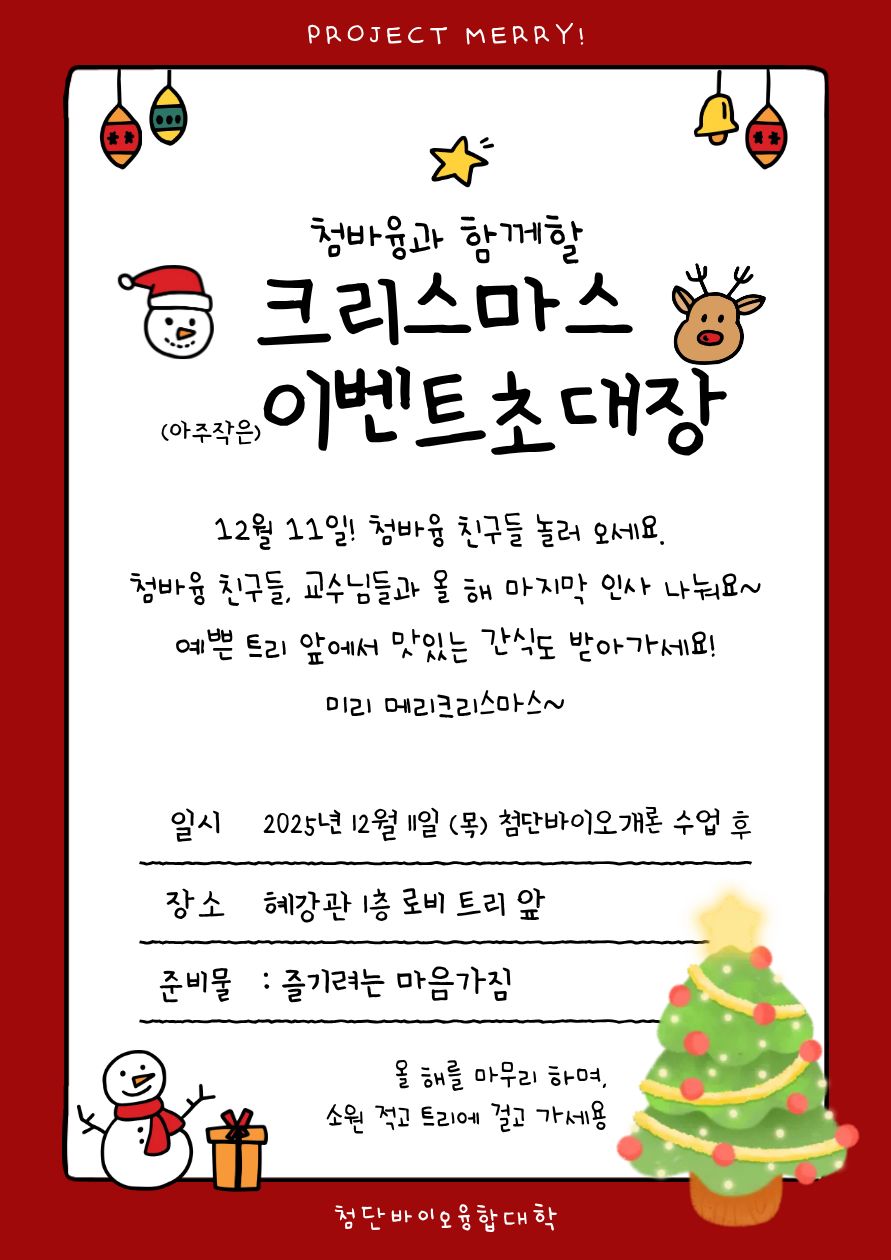 PROJECT MERRY!
첨바융과 함께할
크리스마스
(아주작은)이벤트초대장
12월 11일! 첨바융 친구들 놀러 오세요.
첨바융 친구들, 교수님들과 올 해 마지막 인사 나눠요~
예쁜 트리 앞에서 맛있는 간식도 받아가세요!
미리 메리크리스마스~
일시 2025년 12월 11일 (목) 첨단바이오개론 수업 후
장소 혜강관 1층 로비 트리 앞
준비물 : 즐기려는 마음가짐
올 해를 마무리 하며,
소원 적고 트리에 걸고 가세용
첨단바이오융합대학